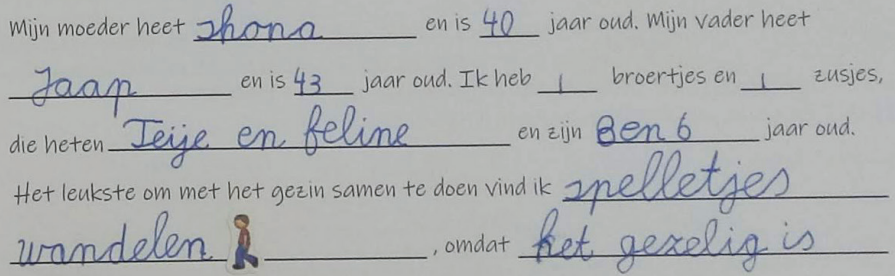 Mijn moeder heet shona en is 40 jaar oud. Mijn vader heet
Jaap en is 43 jaar oud. Ik heb 1 broertjes en 1 zusjes,
die heten Teije en feline en zijn 8 en 6 jaar oud.
Het leukste om met het gezin samen te doen vind ik spelletjes
wandelen, omdat het gezelig is